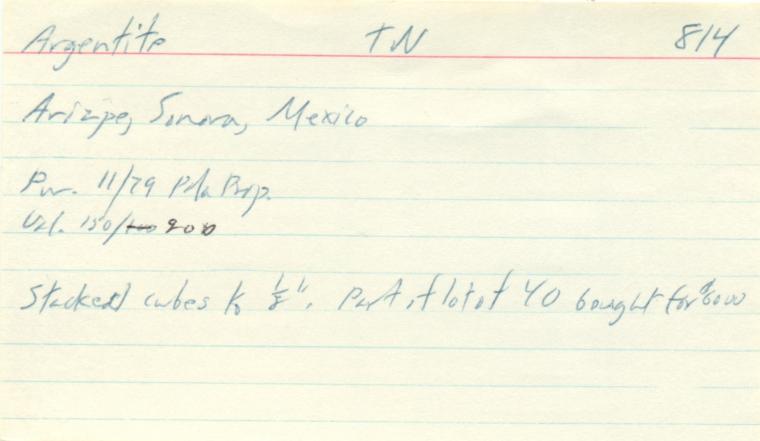 Argentite TN 814
Arizpe, Sonora, Mexico
Pur. 11/79 Pala Prop.
Val. 150/ 200
Stacked cubes to 1/8". Part of lot of 40 bought for $6000